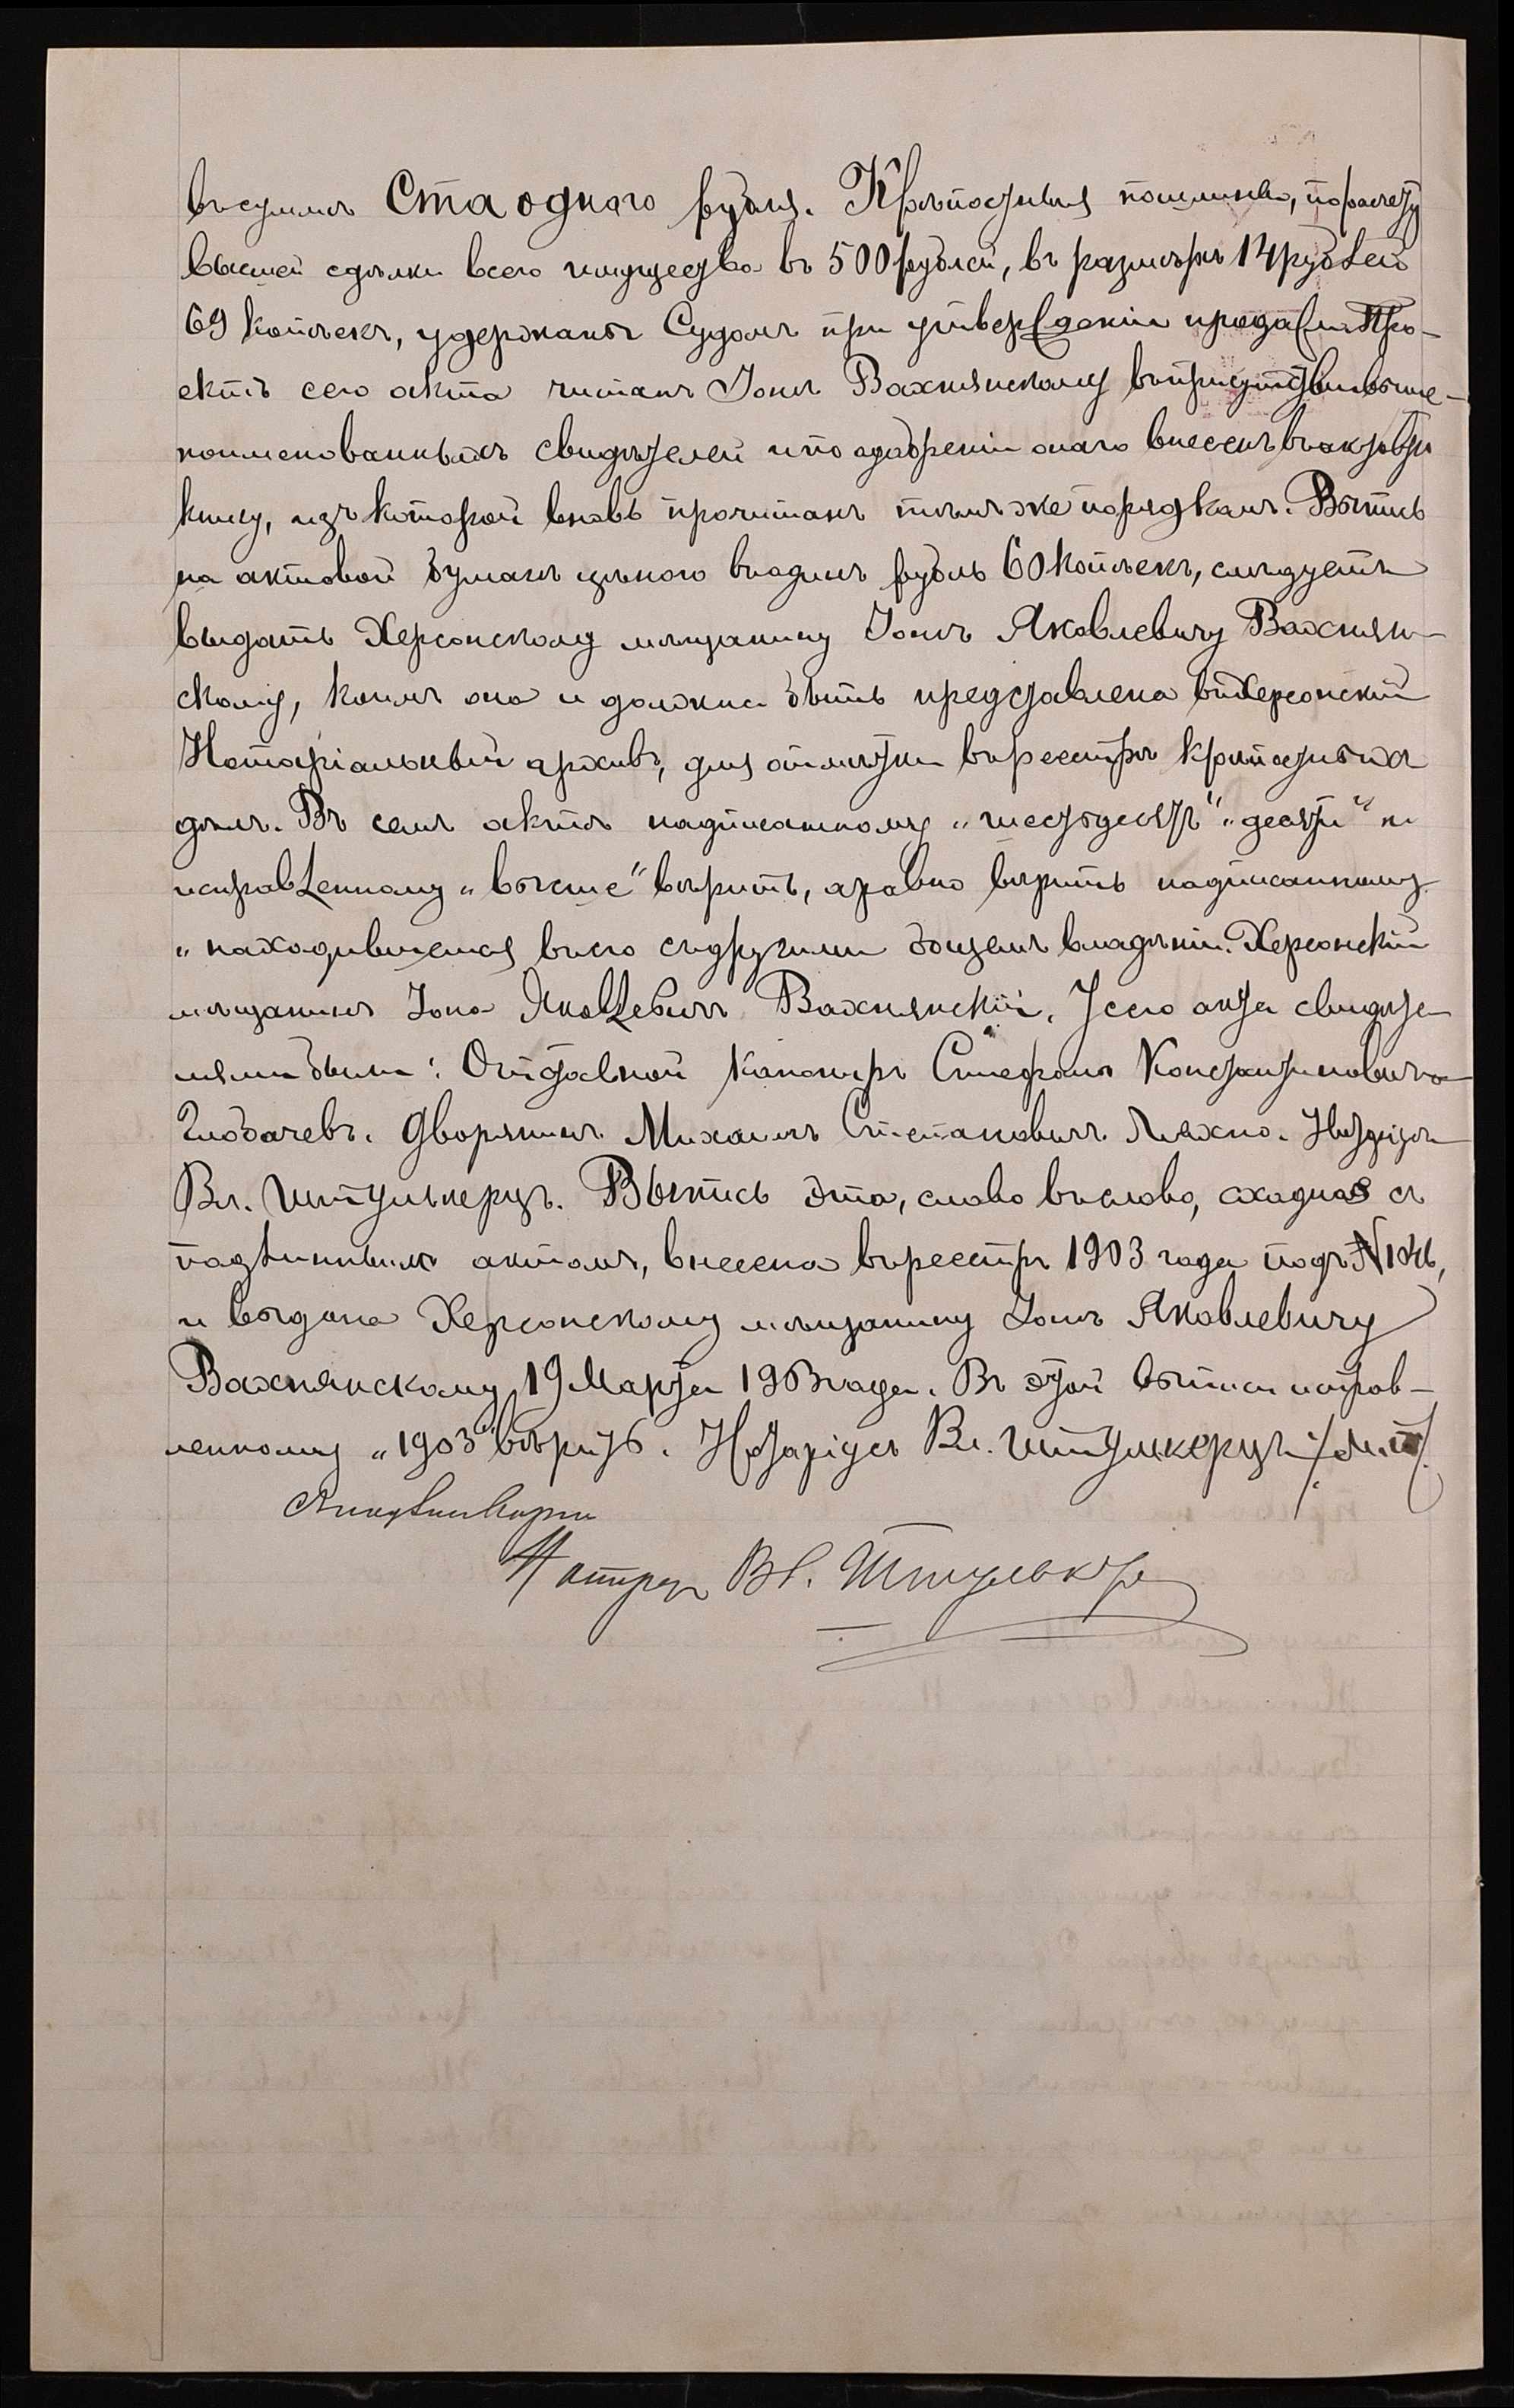 въ суммѣ Ста одного рубля. Крѣпостныя пошлины, по расчету
высшей сдѣлки всего имущества въ 500 рублей, въ размѣрѣ 14 рублей
69 копѣекъ, удержаны Судомъ при утвержденіи продажи. Про-
ектъ сего акта читанъ Іонѣ Вахнянскому въ присутствіи выше-
поименованныхъ свидѣтелей и по одобреніи онаго внесенъ въ актовую
книгу, изъ которой вновь прочитанъ тѣмъ же порядкомъ. Выпись
на актовой бумагѣ цѣною въ одинъ рубль 60 копѣекъ, слѣдуетъ
выдать Херсонскому мѣщанину Іонѣ Яковлевичу Вахнян-
скому, коимъ она и должна быть представлена въ Херсонскій
Нотаріальный архивъ, для отмѣтки въ реестрѣ крѣпостныхъ
дѣлъ. Въ семъ актѣ надписанному „шестьдесятъ“ „десяти“ и
исправленному „высше“ вѣрить, а равно вѣрить надписанному
„находившемся въ его съ другими общемъ владѣніи. Херсонскій
мѣщанинъ Іона Яковлевичъ Вахнянскій. У сего акта свидѣте-
лями были: Отставной канониръ Стефанъ Константиновичъ
Глобачевъ. Дворянинъ Михаилъ Степановичъ Ляхно. Нотаріусъ
Вл. Штулькерцъ. Выпись эта, слово въ слово, сходная съ
подлиннымъ актомъ, внесена въ реестръ 1903 года подъ №
и выдана Херсонскому мѣщанину Іонѣ Яковлевичу
Вахнянскому 19 Марта 1903 года. Въ этой выписи исправ-
ленному „1903“ вѣрить. Нотаріусъ Вл. Штулькерцъ. /М.П./
Нотаріусъ Вл. Штулькерцъ